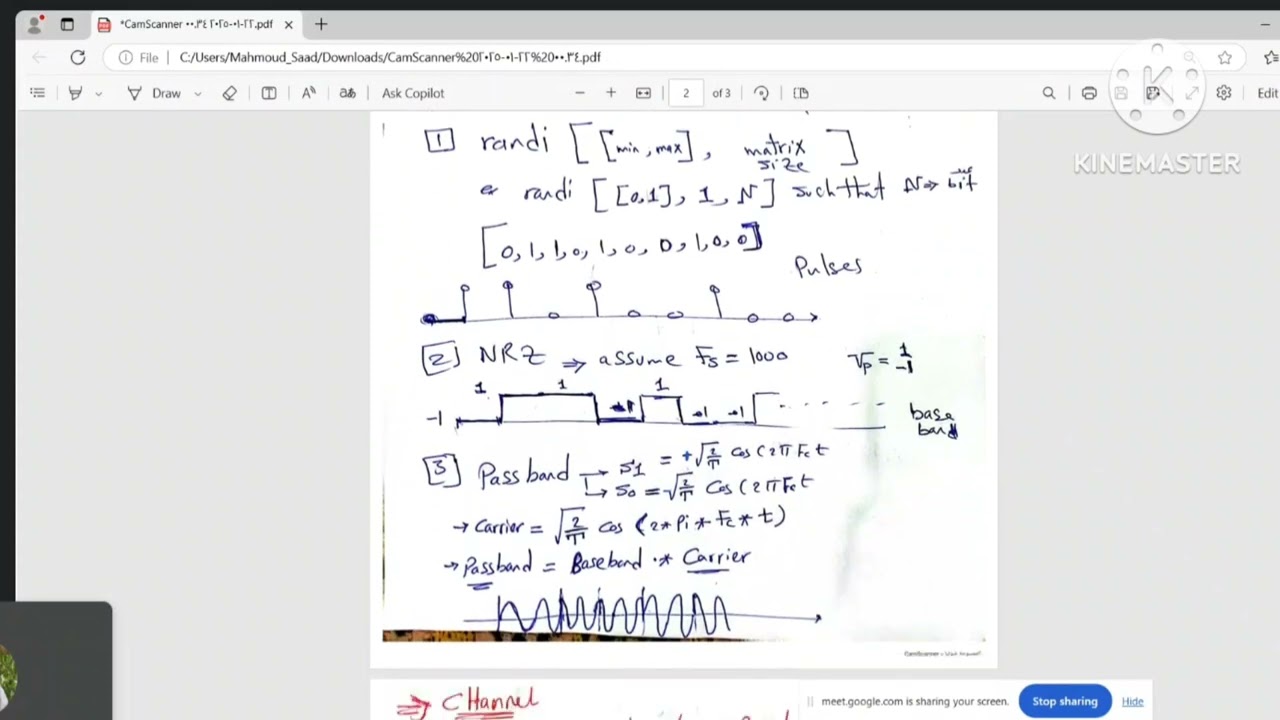 *CamScanner ٠٠.٣٤ ٢٠٢٥-٠١-٢٢.pdf
File
C:/Users/Mahmoud_Saad/Downloads/CamScanner%20٢٠٢٥-٠١-٢٢%20٠٠.٣٤.pdf
Draw
Ask Copilot
2 of 3
Edit
KINEMASTER
1 randi [[min, max], matrix size]
randi [[0,1], 1, N] such that N → bit
[0, 1, 1, 0, 1, 0, 0, 1, 0, 0]
Pulses
2 NRZ ⇒ assume Fs = 1000
Vp = 1 -1
1 1 1
-1 -1 -1 -1
base band
3 Passband → S1 = +√2/T cos(2πFct
→ S0 = -√2/T Cos(2πFct
→ Carrier = √2/T cos (2* Pi * Fc * t)
→ Passband = Baseband .* Carrier
⇒ CHannel
meet.google.com is sharing your screen.
Stop sharing
Hide